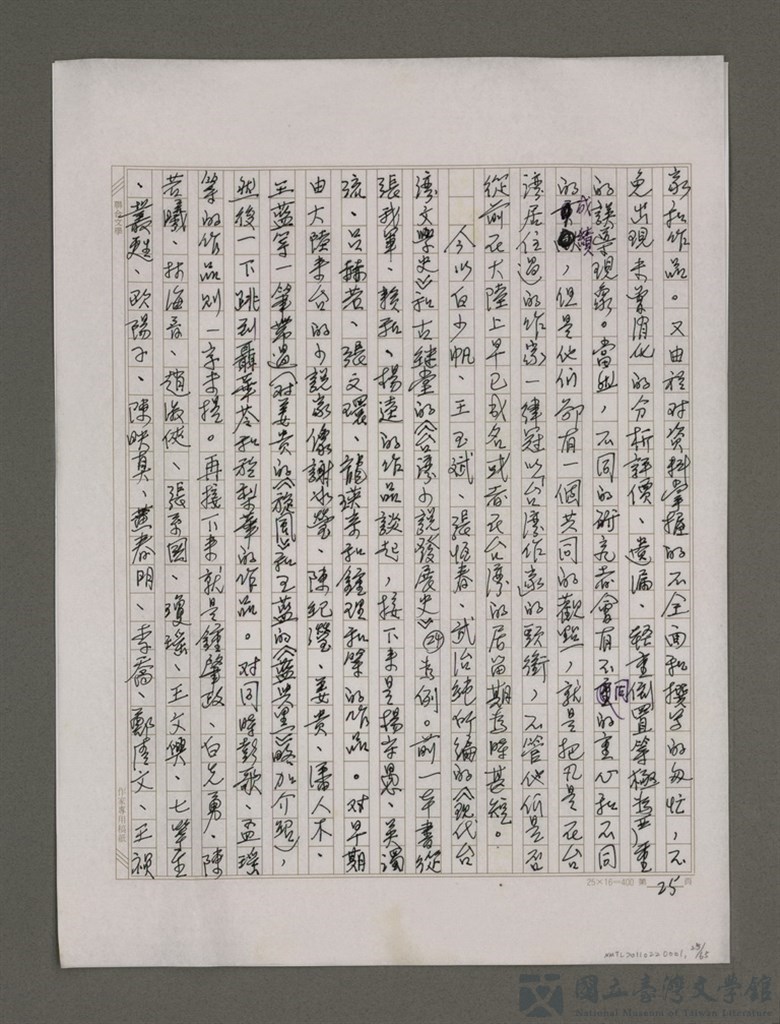 家和作品。又由於对資料掌握的不全面和撰寫的匆忙，不
免出現未曾消化的分析評價、遺漏、轻重倒置等極为严重
的誤導現象。當然，不同的研究者會有不同的重心和不同
的成績，但是他们都有一個共同的觀點，就是把凡是在台
湾居住過的作家一律冠以台湾作家的頭銜，不管他们是否
從前在大陸上早已成名或者在台湾的居留期為時甚短。
今以白少帆、王玉斌、張恒春、武治純所編的《現代台
湾文學史》和古継堂的《台湾小說發展史》㉔為例。前一本書從
張我軍、賴和、楊逵的作品談起，接下来是楊守愚、吴濁
流、呂赫若、張文環、龍瑛宗和鍾理和等的作品。对早期
由大陸来台的小說家像謝冰瑩、陳紀瀅、姜貴、潘人木、
王藍等一筆帶過（对姜貴的《旋風》和王藍的《藍與黑》略加介紹），
然後一下跳到聶華苓和於梨華的作品。对同時彭歌、孟瑤
等的作品则一字未提。再接下来就是鍾肇政、白先勇、陳
若曦、林海音、趙淑俠、張系國、瓊瑤、王文興、七等生
、叢甦、歐陽子、陳映真、黃春明、李喬、鄭清文、王禎
聯合文學
作家專用稿紙
25×16=400 第25頁
NMTL20110220001, 25/65
國立臺灣文學館
National Museum of Taiwan Literature